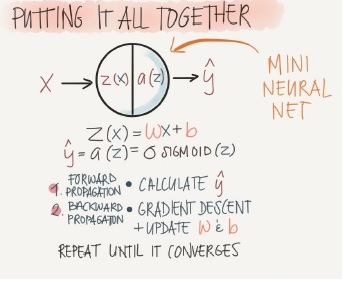 PUTTING IT ALL TOGETHER
X → z(x) | a(z) → ŷ
MINI
NEURAL
NET
Z(x) = wx + b
ŷ = a(z) = σ SIGMOID(z)
1. FORWARD PROPAGATION • CALCULATE ŷ
2. BACKWARD PROPAGATION • GRADIENT DESCENT
+ UPDATE w & b
REPEAT UNTIL IT CONVERGES